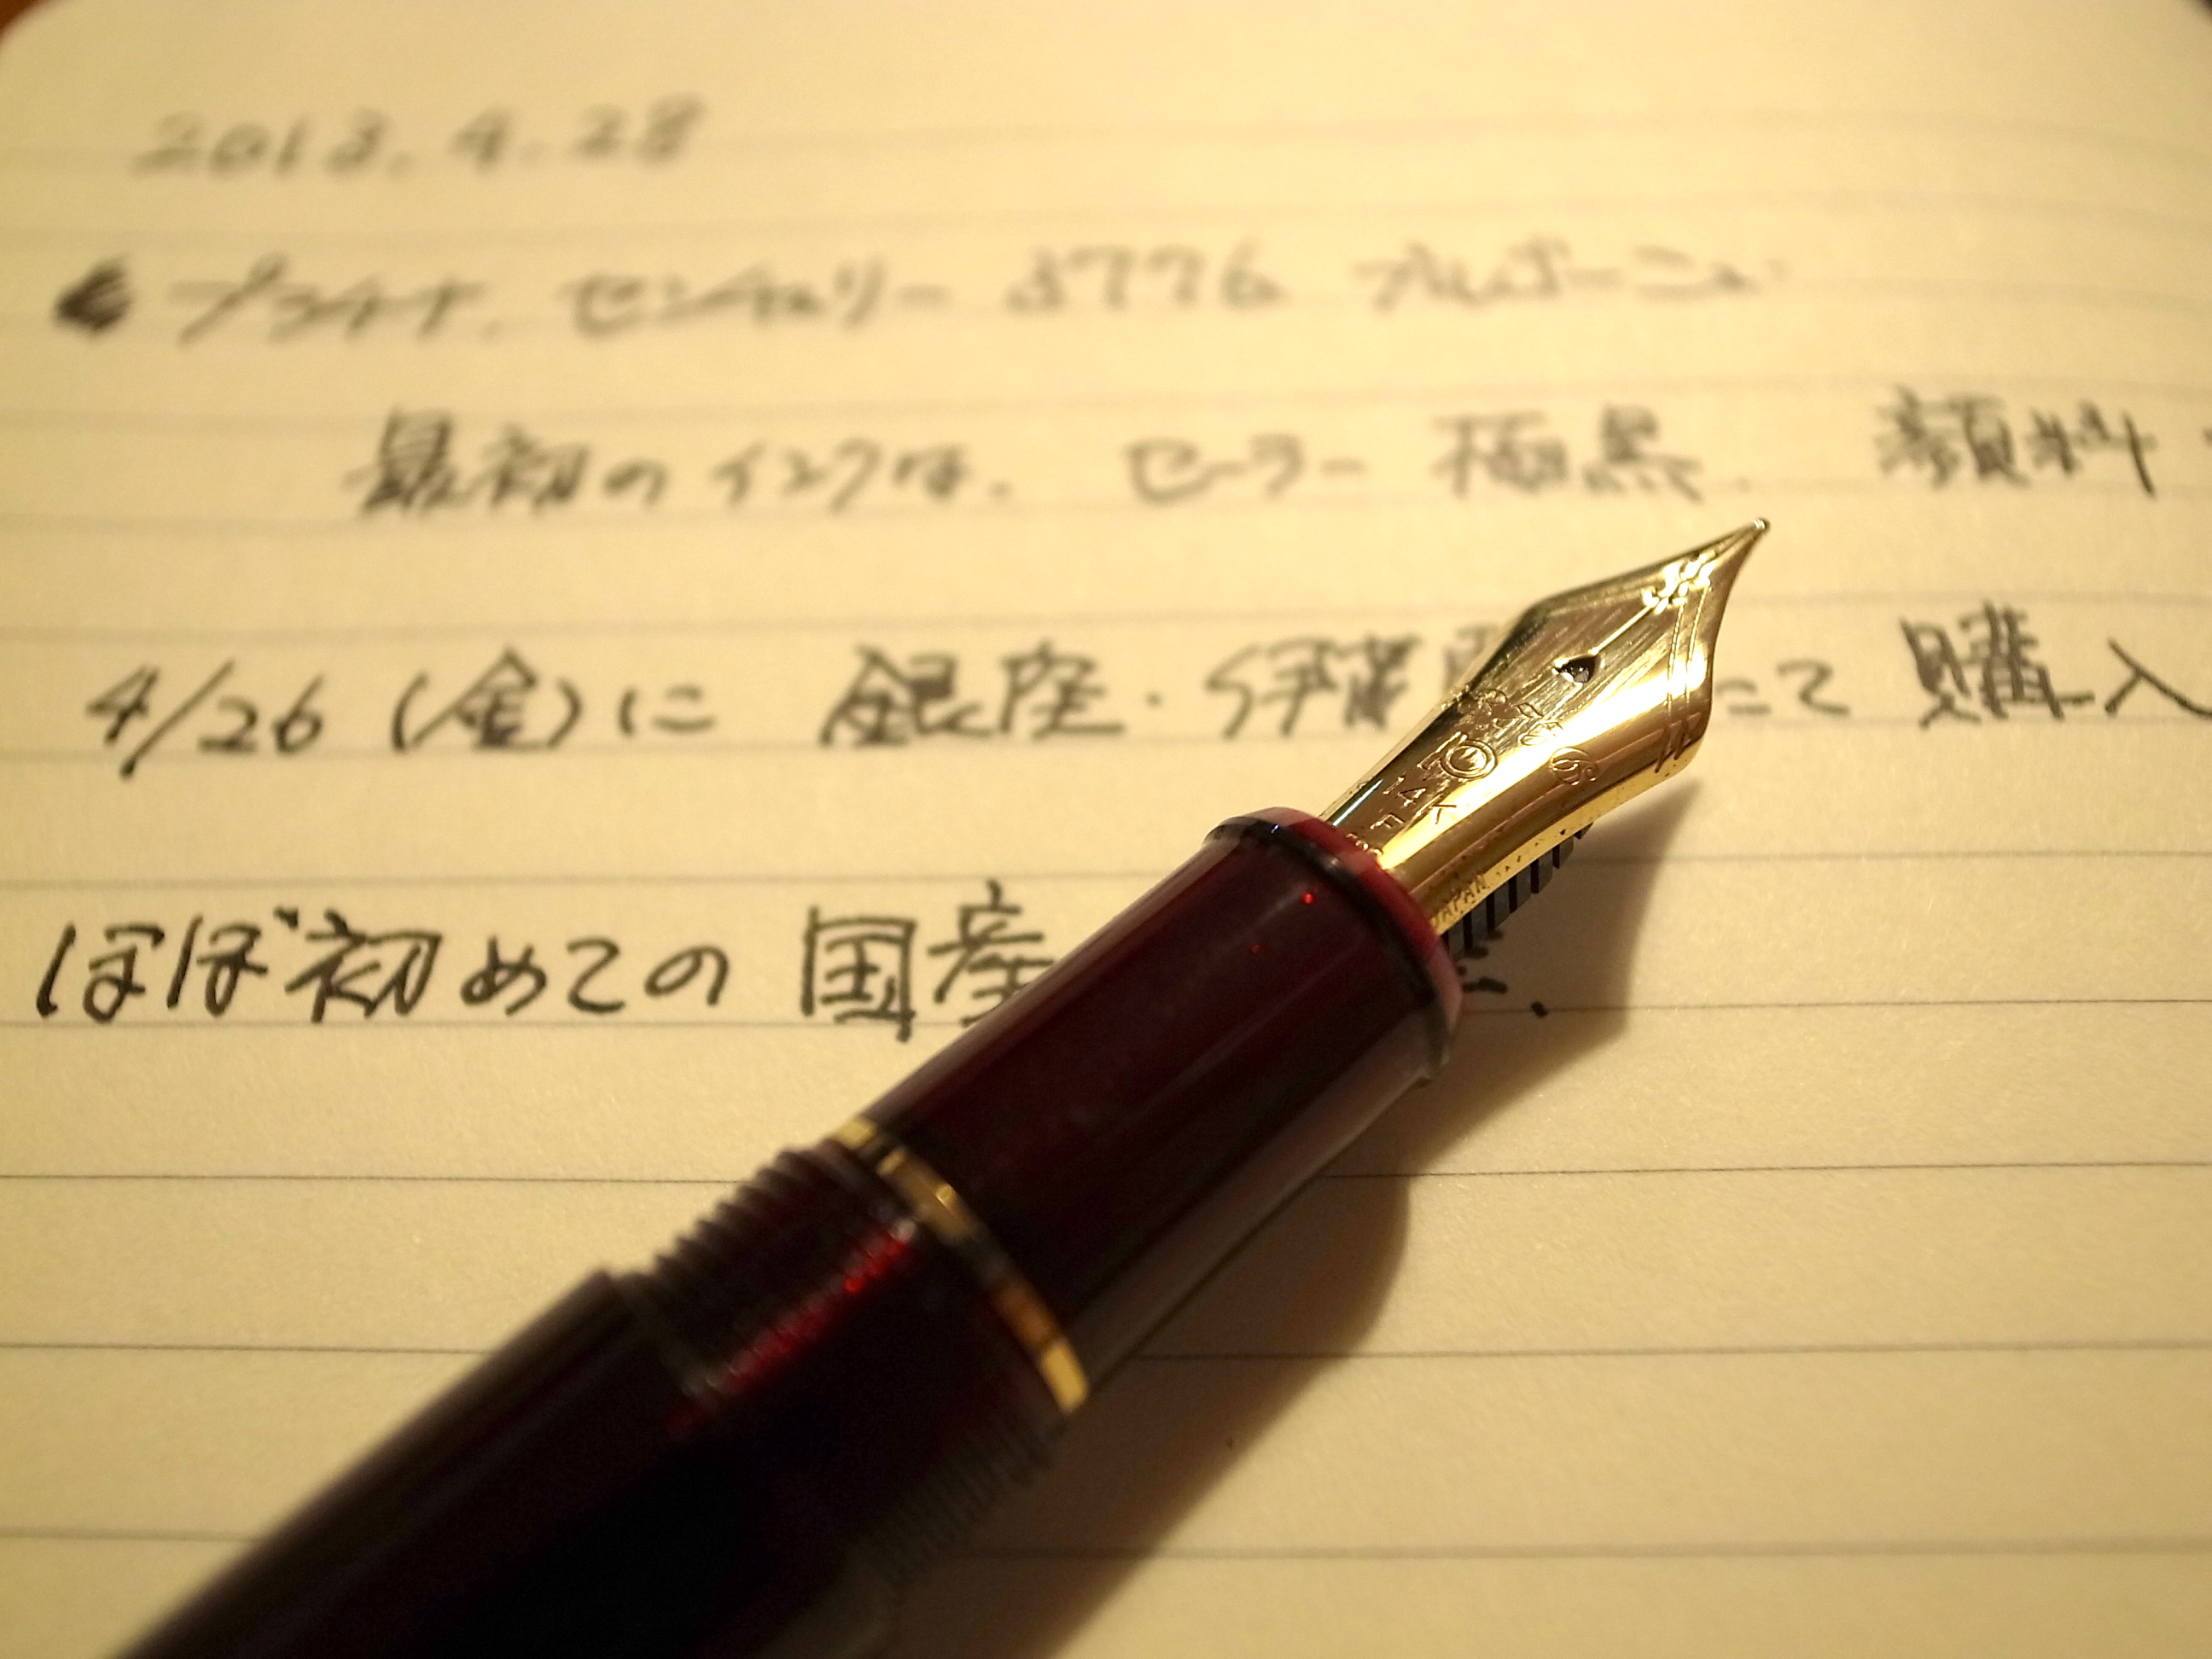 2013.4.28
プラチナ. センチュリー 3776 ブルゴーニュ
最初のインクは. セーラー 極黒. 顔料
4/26 (金)に 銀座・伊東屋にて 購入
ほぼ初めての 国産
14K
F
JAPAN